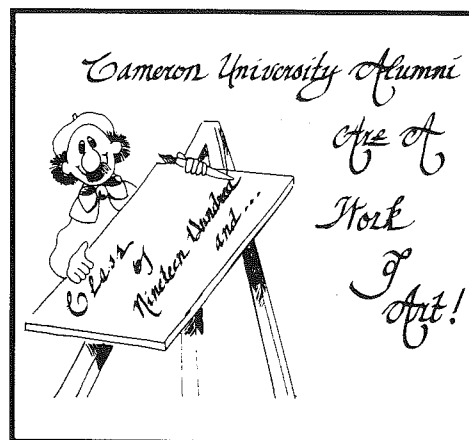 Cameron University Alumni
Are A
Work
Of
Art!
Class
of
Nineteen Hundred
and...